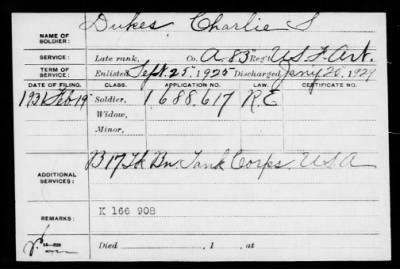 Dukes, Charlie S
NAME OF SOLDIER:
SERVICE: Late rank, Co. A. 83 Reg't U S F. Art.
TERM OF SERVICE: Enlisted Sept. 25, 1925 Discharged Jan'y 20, 1929
DATE OF FILING. CLASS. APPLICATION NO. LAW. CERTIFICATE NO.
1931 Feb 19 Soldier, 1,688,617 R.E
Widow,
Minor,
B 17 Tk Bn Tank Corps U S A
ADDITIONAL SERVICES:
K 166 908
REMARKS:
Died , 1 , at